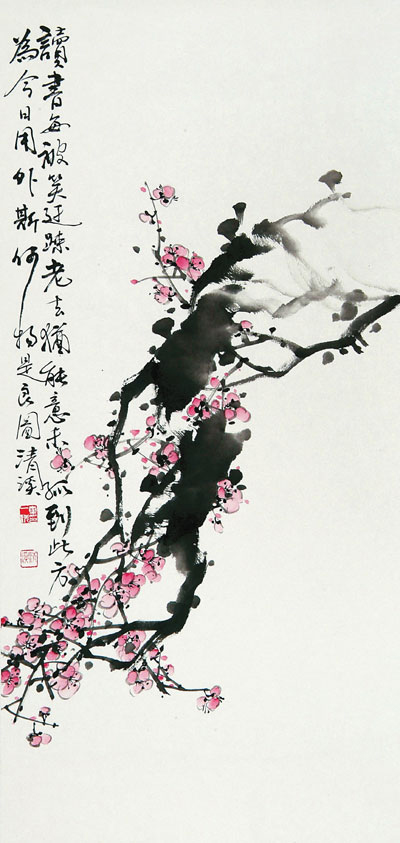 讀書每被笑迂疎老去猶能意未孤到此方
為今日用外斯何物是良圖清